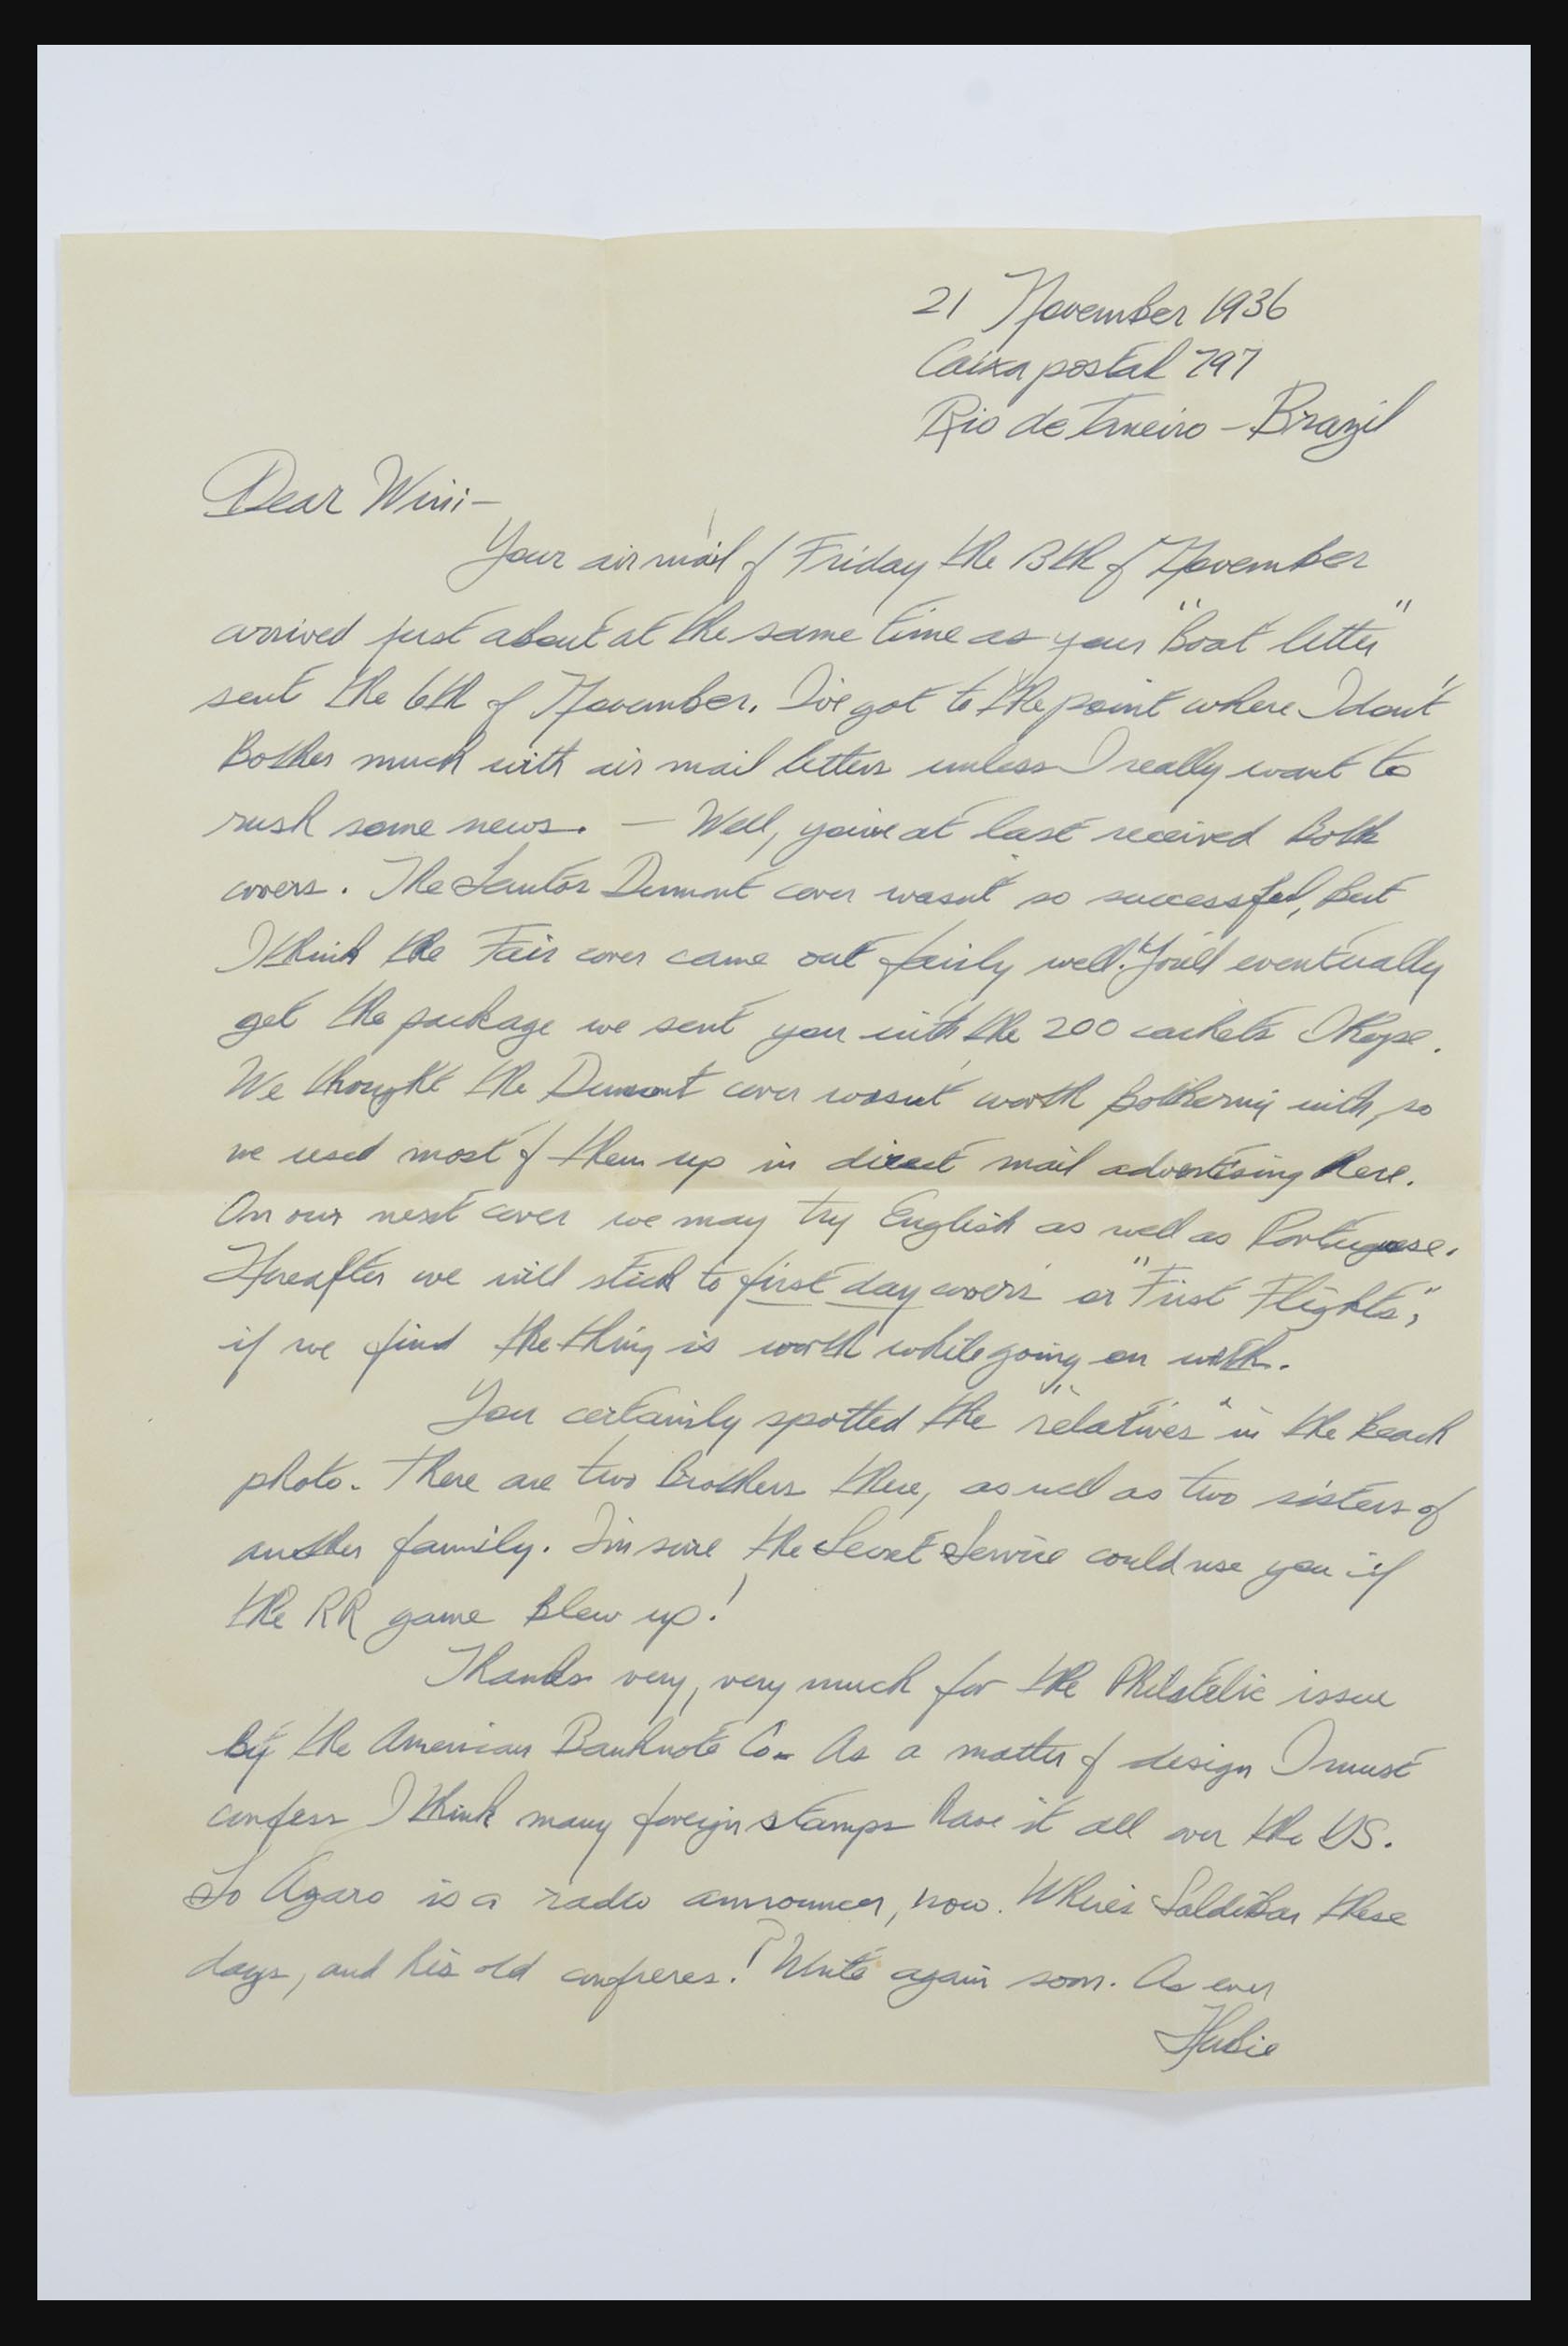 21 November 1936
Caixa postal 797
Rio de Janeiro - Brazil
Dear Wini-
Your air mail of Friday the 13th of November
arrived just about at the same time as your "Boat letter"
sent the 6th of November. I've got to the point where I don't
Bother much with air mail letters unless I really want to
rush some news. — Well, you've at last received Both
covers. The Santos Dumont cover wasn't so successful, But
I think the Fair cover came out fairly well. You'll eventually
get the package we sent you with the 200 cachets I hope.
We thought the Dumont cover wasn't worth Bothering with, so
we used most of them up in direct mail advertising here.
On our next cover we may try English as well as Portuguese.
Hereafter we will stick to first day covers or "First Flights",
if we find the thing is worth while going on with.
You certainly spotted the "relatives" in the Beach
photo. There are two Brothers there, as well as two sisters of
another family. I'm sure the Secret Service could use you if
the RR game Blew up!
Thanks very, very much for the Philatelic issue
By the American Banknote Co. As a matter of design I must
confess I think many foreign stamps have it all over the US.
So Agaro is a radio announcer, now. Where's SaldeBar these
days, and his old confreres? Write again soon. As ever
HuBie